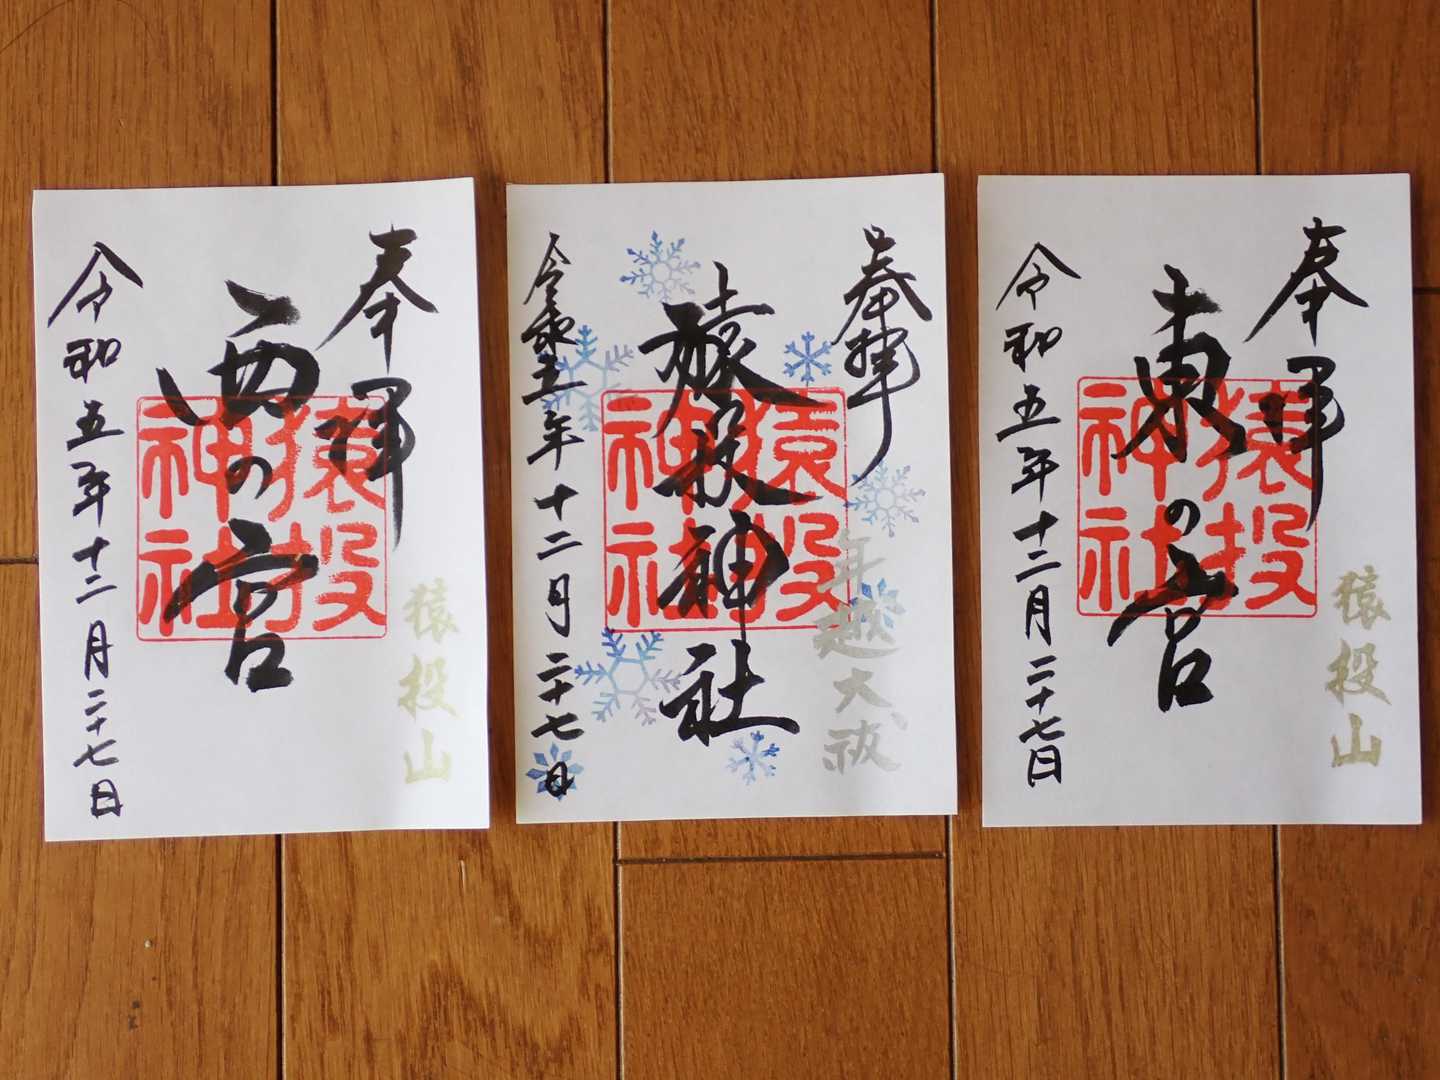 奉拝
西の宮
猿投神社
猿投山
令和五年十二月二十七日
奉拝
猿投神社
猿投神社
年越大祓
令和五年十二月二十七日
奉拝
東の宮
猿投神社
猿投山
令和五年十二月二十七日